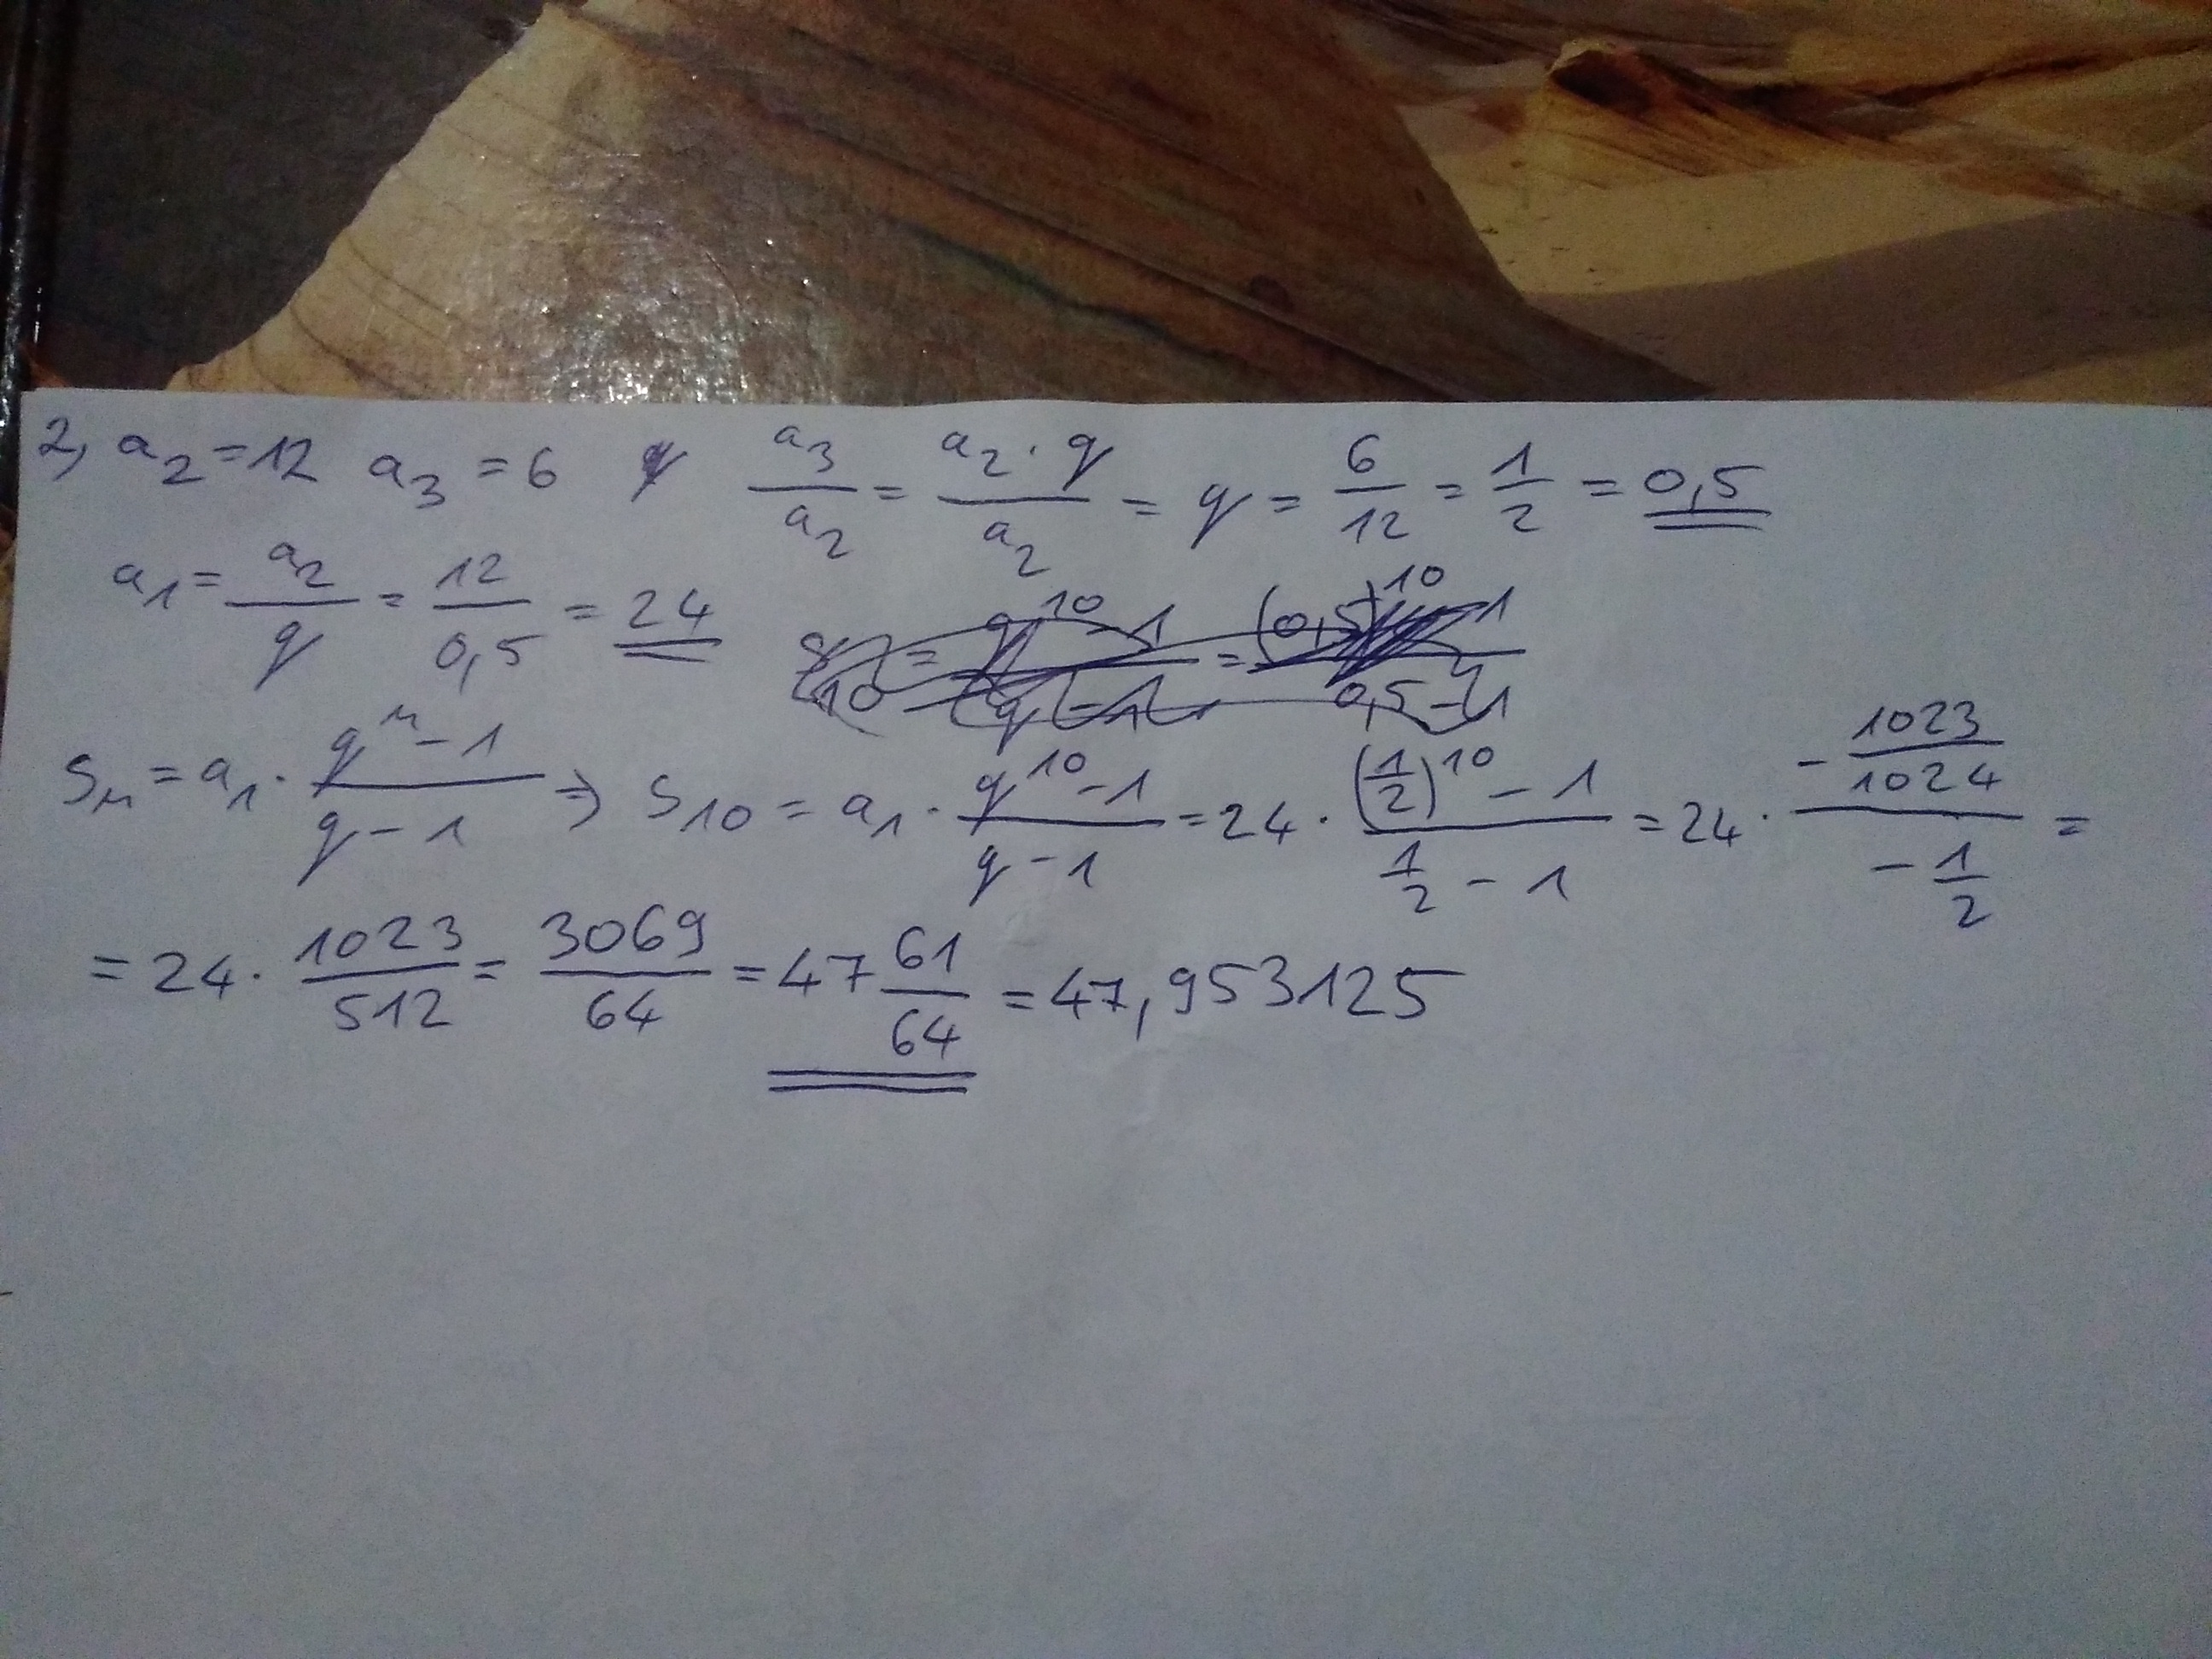 2, a₂ = 12 a₃ = 6 q a₃/a₂ = (a₂ · q)/a₂ = q = 6/12 = 1/2 = 0,5
a₁ = a₂/q = 12/0,5 = 24
Sₙ = a₁ · (qⁿ - 1)/(q - 1) ⇒ S₁₀ = a₁ · (q¹⁰ - 1)/(q - 1) = 24 · ((1/2)¹⁰ - 1)/(1/2 - 1) = 24 · (- 1023/1024)/(- 1/2) =
= 24 · 1023/512 = 3069/64 = 47 61/64 = 47,953125